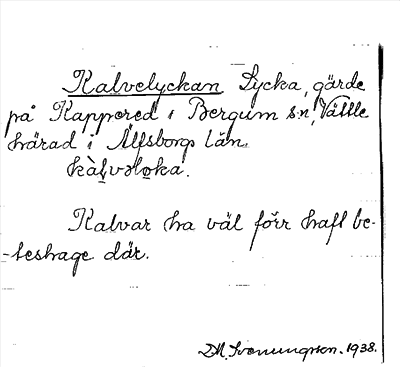 Kalvelyckan Lycka, gärde
på Kappered i Bergum sn, Vättle
härad i Älfsborgs län.
kàḷvəlo̱ka.
Kalvar ha väl förr haft be-
-teshage där.
D.M. Svenungsson. 1938.